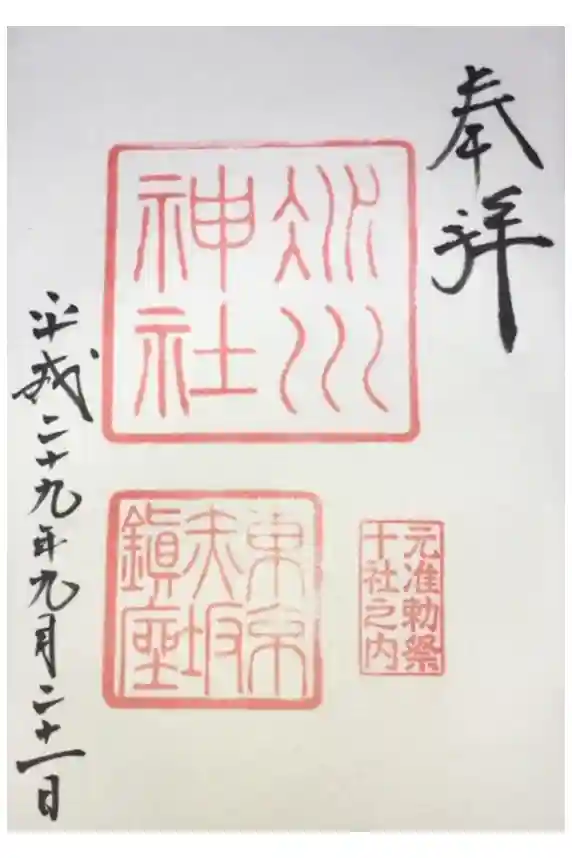 奉拝
冰川
神社
元准勅祭
十社之内
東京
赤坂
鎮座
平成二十九年九月二十一日